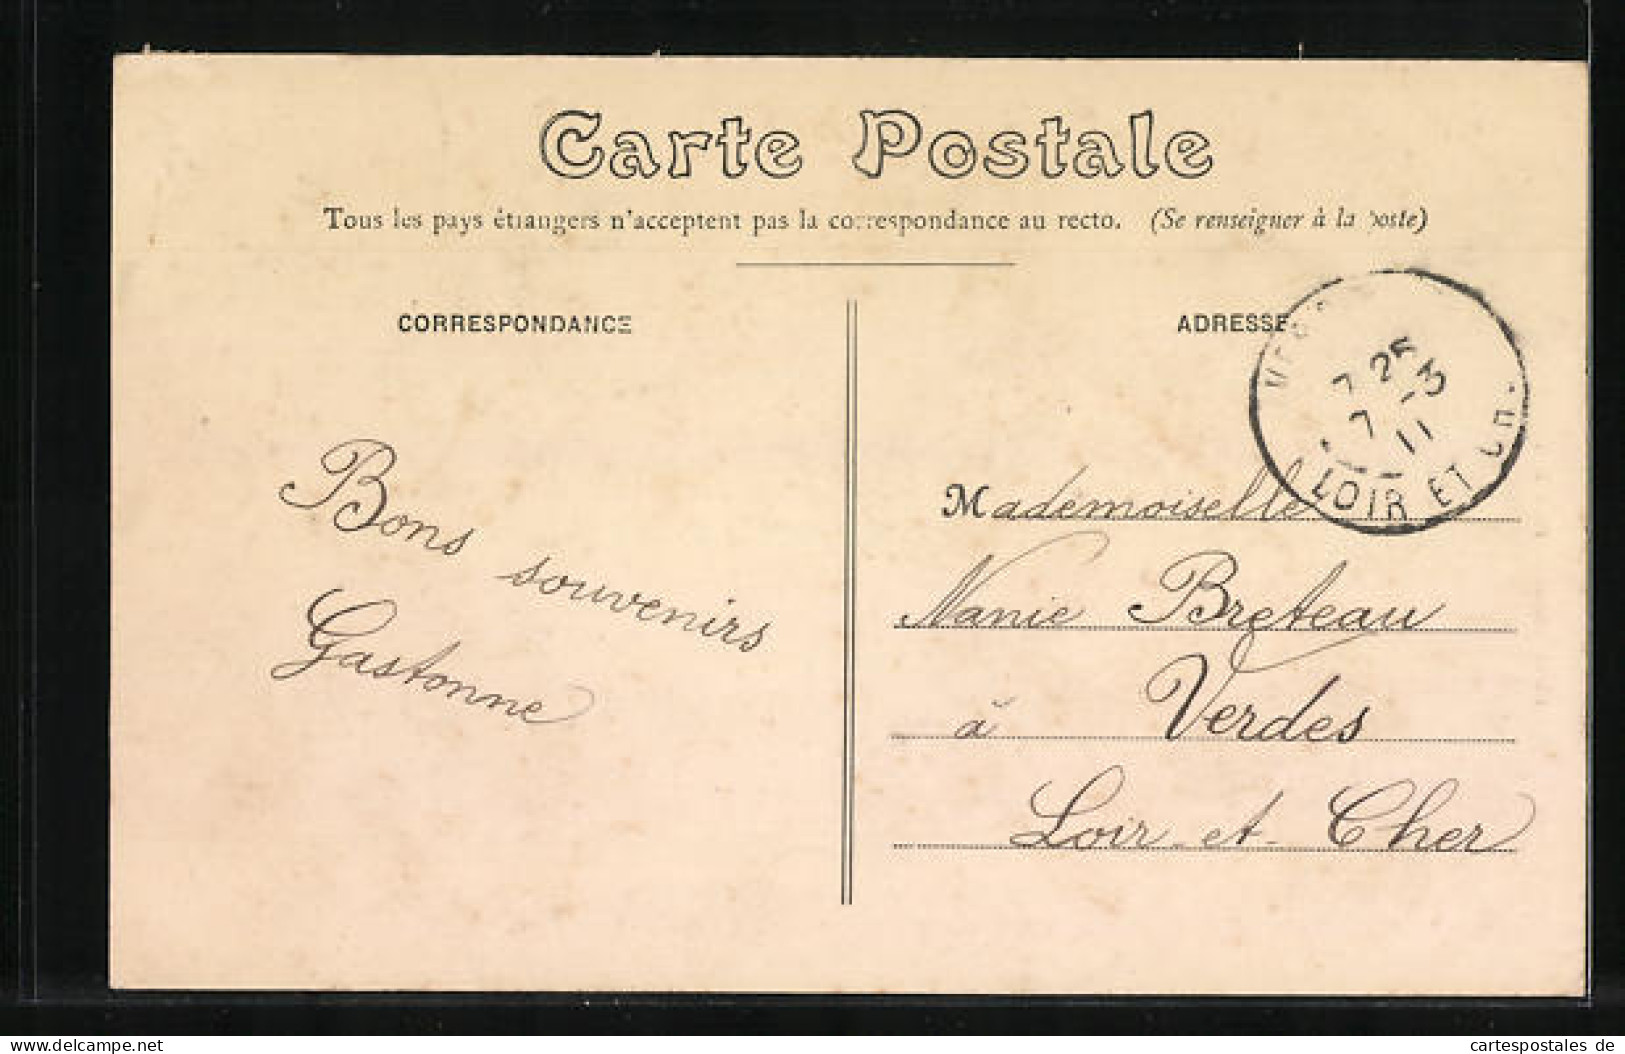 Carte Postale
Tous les pays étrangers n'acceptent pas la correspondance au recto. (Se renseigner à la poste)
CORRESPONDANCE
ADRESSE
7 25
7 -3
11
LOIR ET CH.
Bons souvenirs
Gastonne
Mademoiselle
Nanie Breteau
à Verdes
Loir-et-Cher
www.delcampe.net
cartespostales de